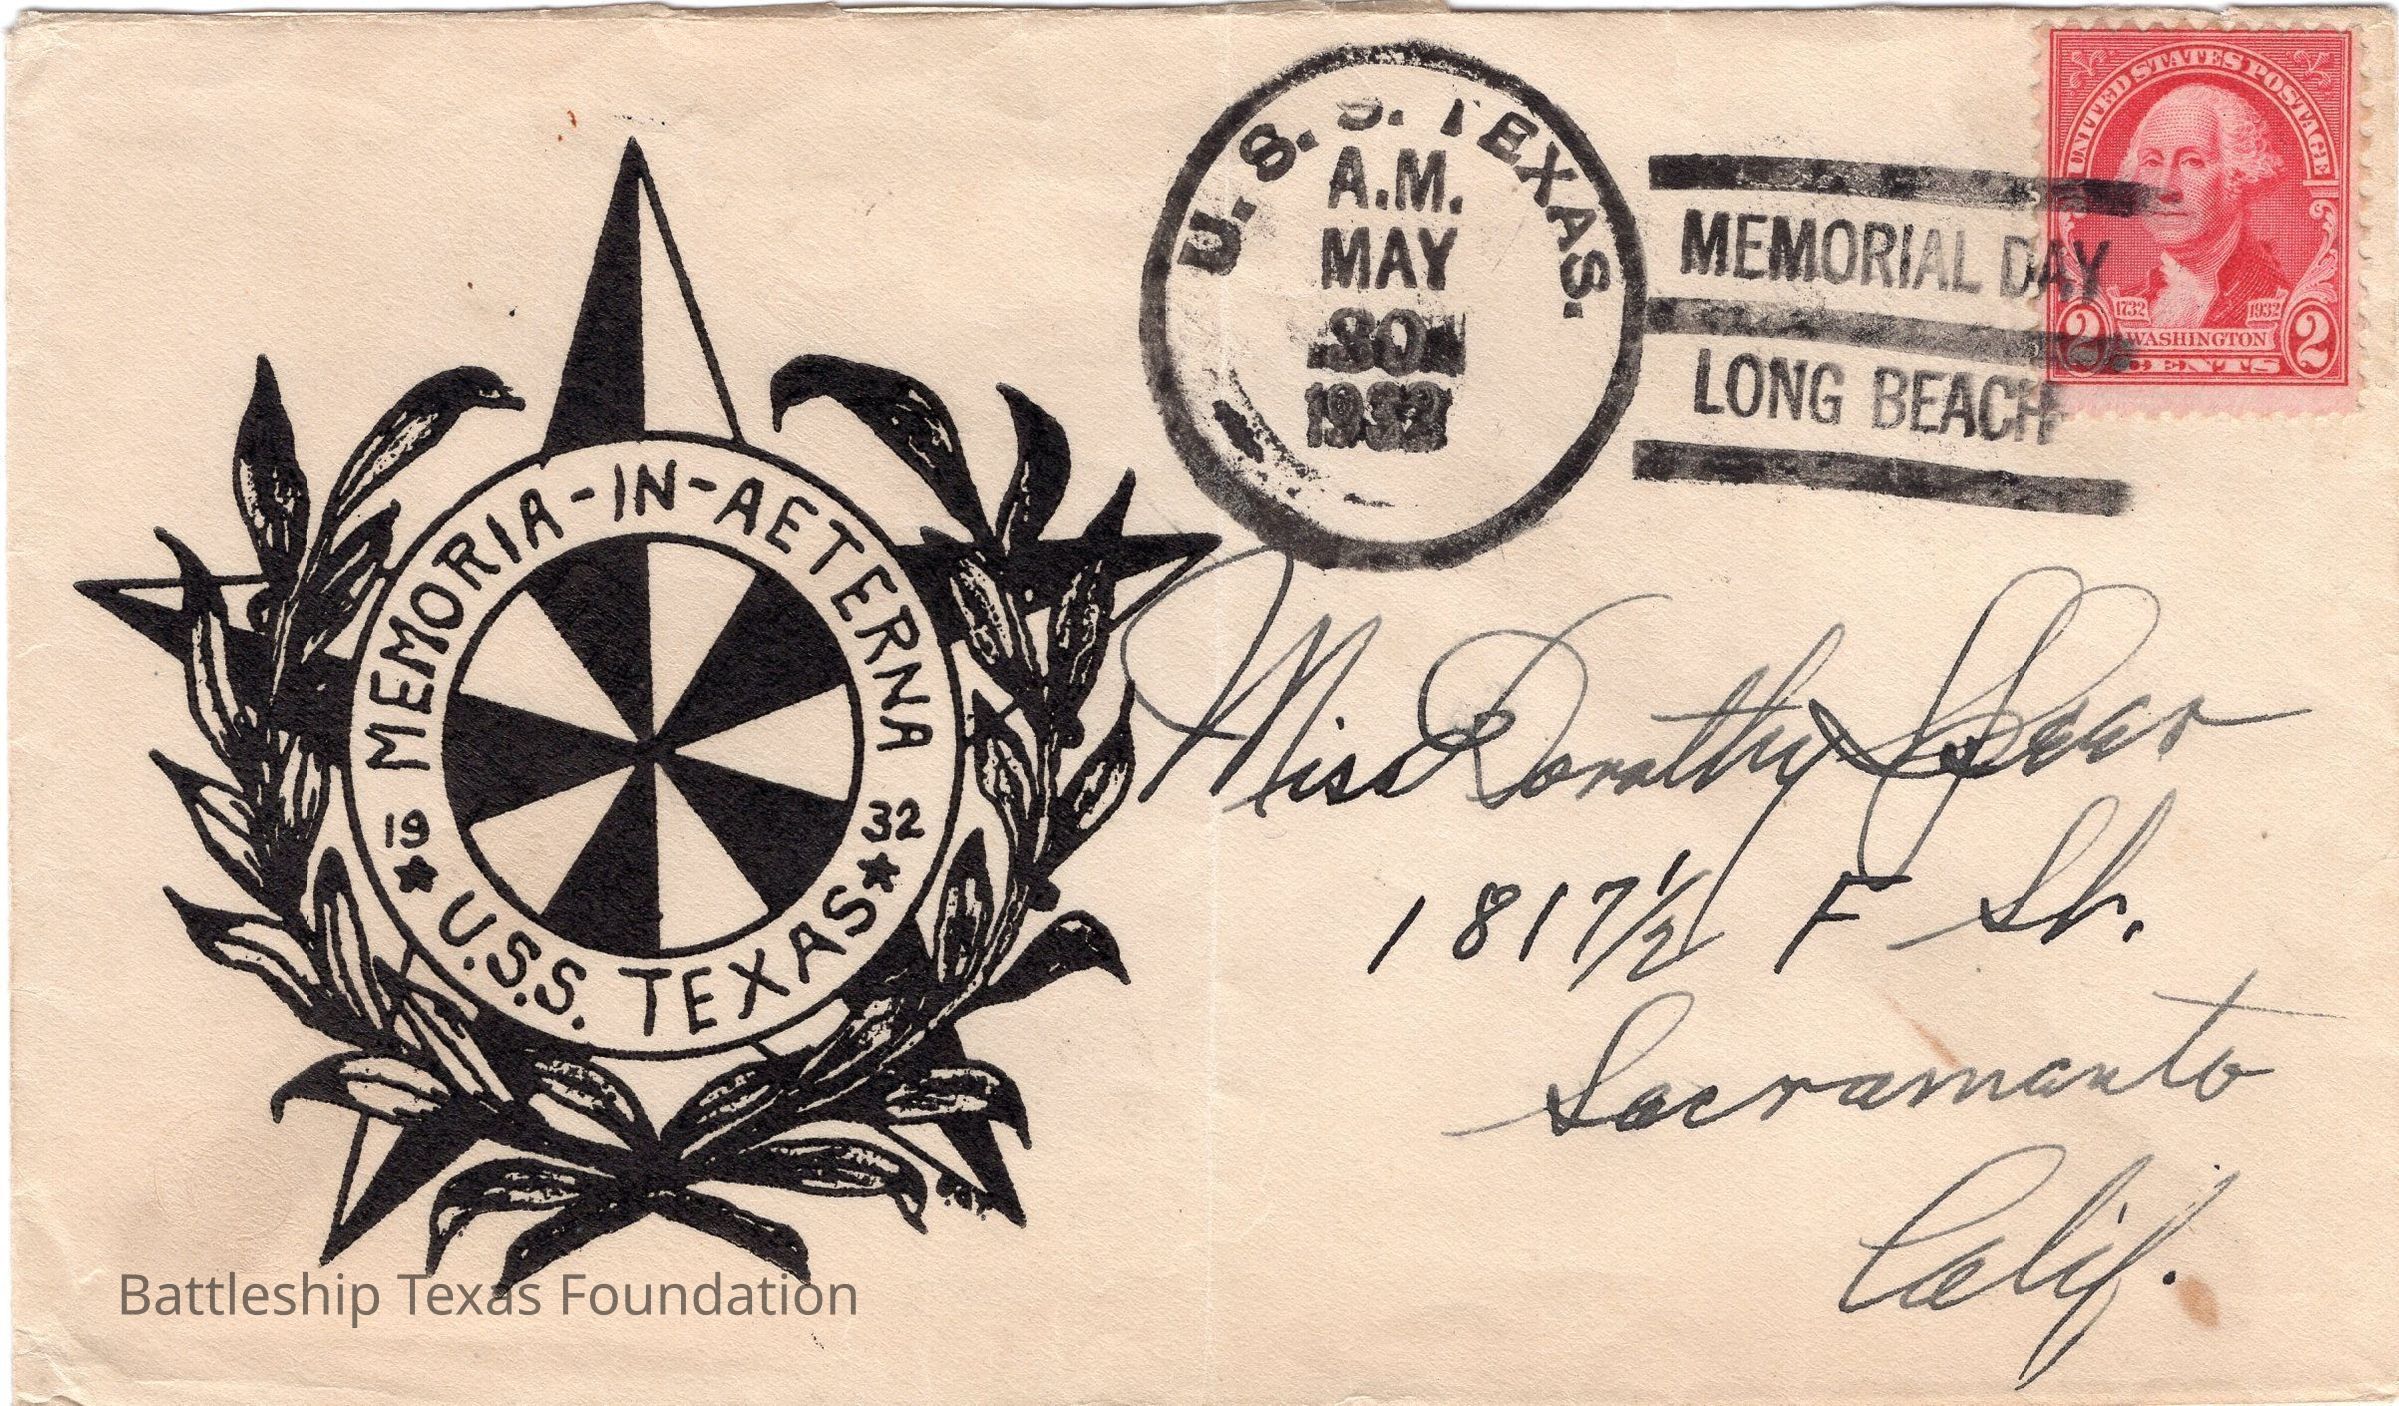 U. S. S. TEXAS.
A.M.
MAY
30
1932
MEMORIAL DAY
LONG BEACH
UNITED STATES POSTAGE
1732 1932
2 WASHINGTON 2
CENTS
MEMORIA-IN-AETERNA
19 32
U.S.S. TEXAS
Miss Dorothy
1817½ F St.
Sacramento
Calif.
Battleship Texas Foundation